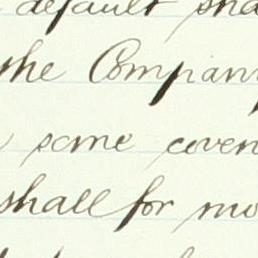 default sha
the Company
some coven
shall for mo